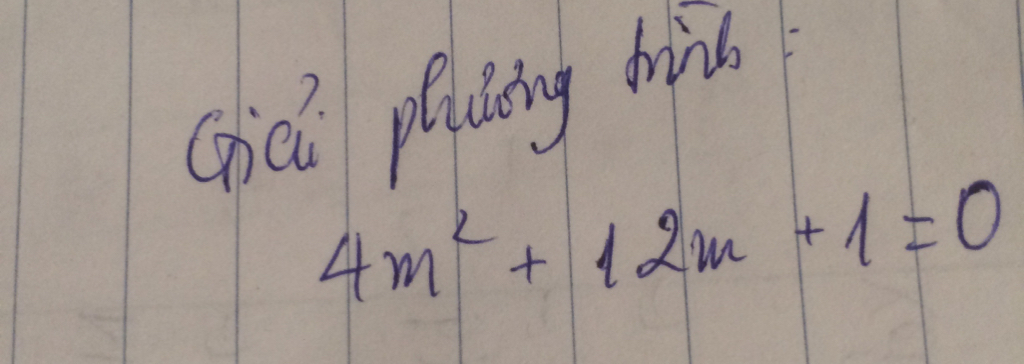 Giải phương trình :
4m² + 12m + 1 = 0